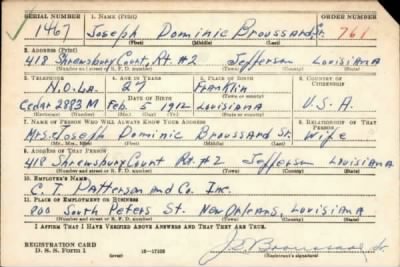 SERIAL NUMBER 1. NAME (Print) ORDER NUMBER
1467 Joseph Dominic Broussard, Sr. 761
(First) (Middle) (Last)
2. ADDRESS (Print)
418 Shrewsbury Court, Rt. #2 Jefferson Louisiana
(Number and street or R. F. D. number) (Town) (County) (State)
3. TELEPHONE 4. AGE IN YEARS 5. PLACE OF BIRTH 6. COUNTRY OF CITIZENSHIP
N.O. La. 27 Franklin
DATE OF BIRTH (Town or county)
Cedar 2893 M Feb. 5 1912 Louisiana U.S.A.
(Exchange) (Number) (Mo.) (Day) (Yr.) (State or country)
7. NAME OF PERSON WHO WILL ALWAYS KNOW YOUR ADDRESS 8. RELATIONSHIP OF THAT PERSON
Mrs. Joseph Dominic Broussard Sr. Wife
(Mr., Mrs., Miss) (First) (Middle) (Last)
9. ADDRESS OF THAT PERSON
418 Shrewsbury Court Rt. #2 Jefferson Louisiana
(Number and street or R. F. D. number) (Town) (County) (State)
10. EMPLOYER'S NAME
C. T. Patterson and Co. Inc.
11. PLACE OF EMPLOYMENT OR BUSINESS
800 South Peters St. New Orleans, Louisiana
(Number and street or R. F. D. number) (Town) (County) (State)
I AFFIRM THAT I HAVE VERIFIED ABOVE ANSWERS AND THAT THEY ARE TRUE.
REGISTRATION CARD
D. S. S. Form 1 (over) (Registrant's signature)